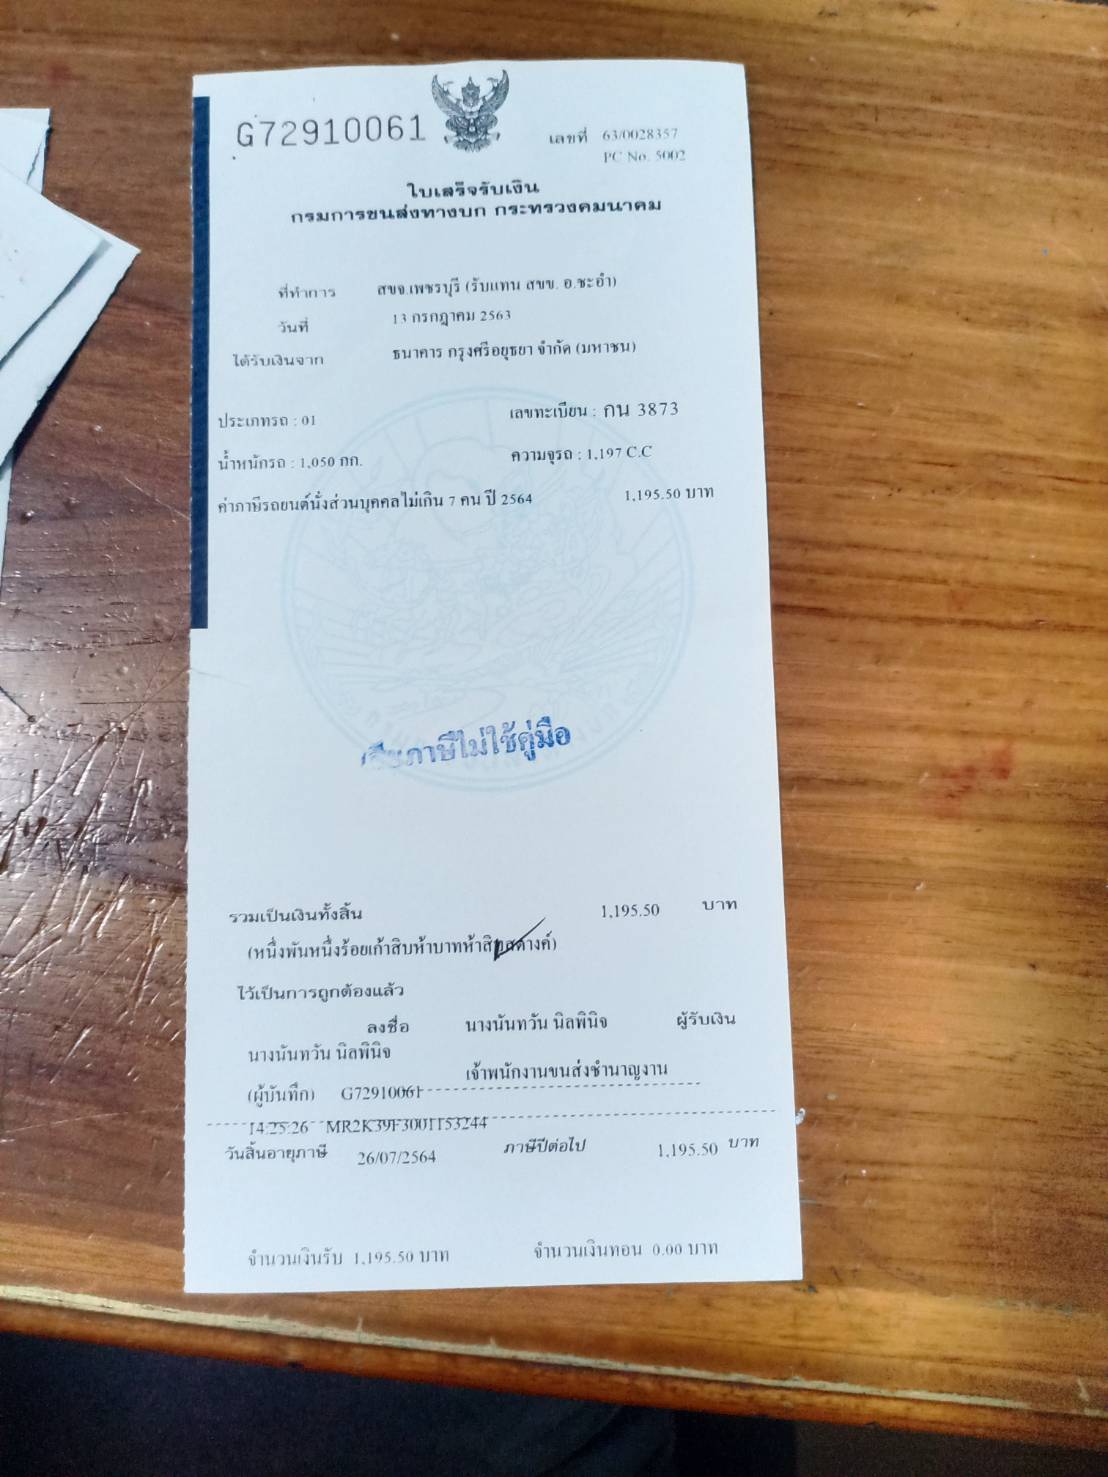 G72910061
เลขที่ 63/0028357
PC No. 5002
ใบเสร็จรับเงิน
กรมการขนส่งทางบก กระทรวงคมนาคม
ที่ทำการ สขจ.เพชรบุรี (รับแทน สขข. อ.ชะอำ)
วันที่ 13 กรกฎาคม 2563
ได้รับเงินจาก ธนาคาร กรุงศรีอยุธยา จำกัด (มหาชน)
ประเภทรถ : 01 เลขทะเบียน : กน 3873
น้ำหนักรถ : 1,050 กก. ความจุรถ : 1,197 C.C
ค่าภาษีรถยนต์นั่งส่วนบุคคลไม่เกิน 7 คน ปี 2564 1,195.50 บาท
ภาษีไม่ใช้คู่มือ
รวมเป็นเงินทั้งสิ้น 1,195.50 บาท
(หนึ่งพันหนึ่งร้อยเก้าสิบห้าบาทห้าสิบสตางค์)
ไว้เป็นการถูกต้องแล้ว
ลงชื่อ นางนันทวัน นิลพินิจ ผู้รับเงิน
นางนันทวัน นิลพินิจ
เจ้าพนักงานขนส่งชำนาญงาน
(ผู้บันทึก) G72910061
14:25:26 MR2K39F3001153244
วันสิ้นอายุภาษี 26/07/2564 ภาษีปีต่อไป 1,195.50 บาท
จำนวนเงินรับ 1,195.50 บาท จำนวนเงินทอน 0.00 บาท